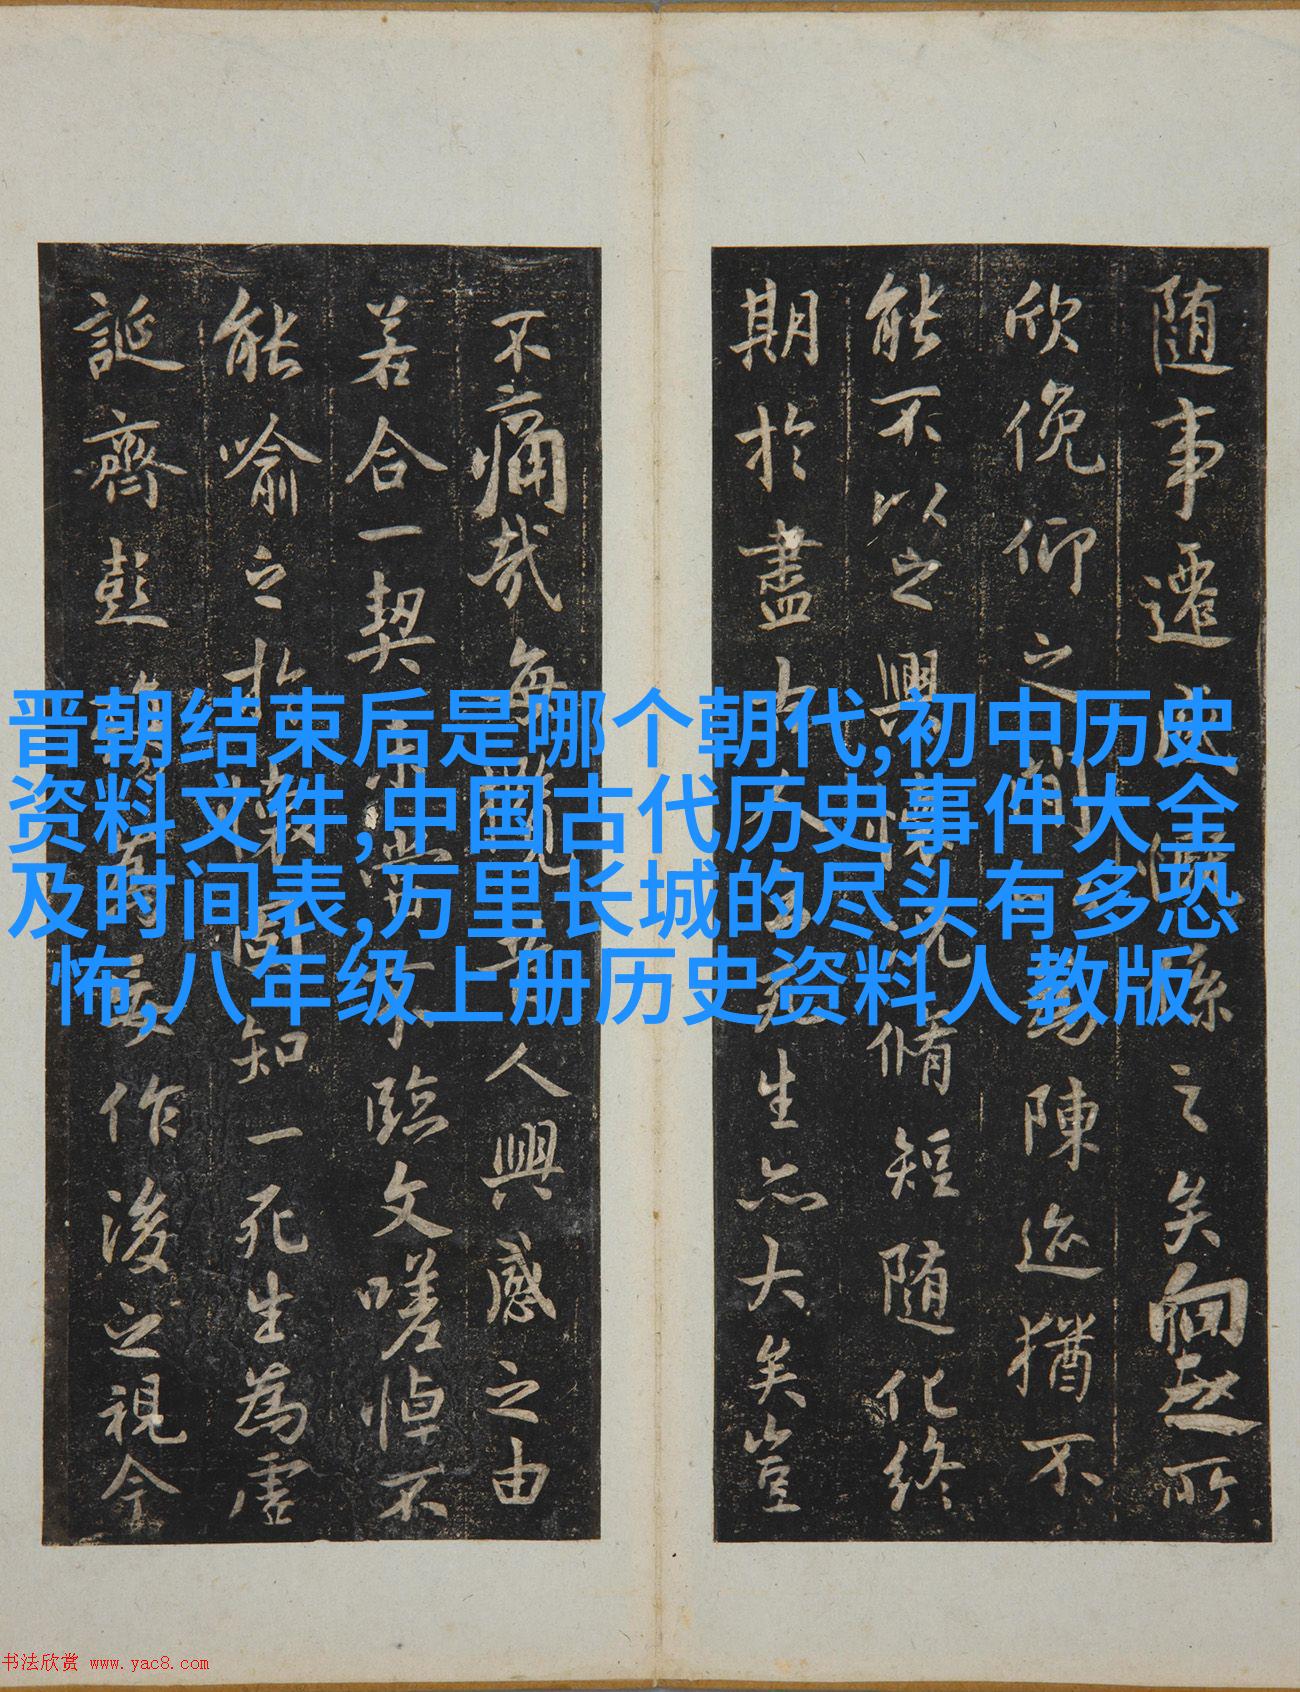 晋朝结束后是哪个朝代,初中历史
资料文件,中国古代历史事件大全
及时间表,万里长城的尽头有多恐
怖,八年级上册历史资料人教版
随事遷感慨係之矣向之所
欣俛仰之閒以為陳迹猶不
能不以之興懷況脩短随化終
期於盡古人云死生亦大矣豈
不痛哉每攬昔人興感之由
若合一契未嘗不臨文嗟悼不
能喻之於懷固知一死生為虛
誕齊彭殤為妄作後之視今
书法欣赏 www.yac8.com